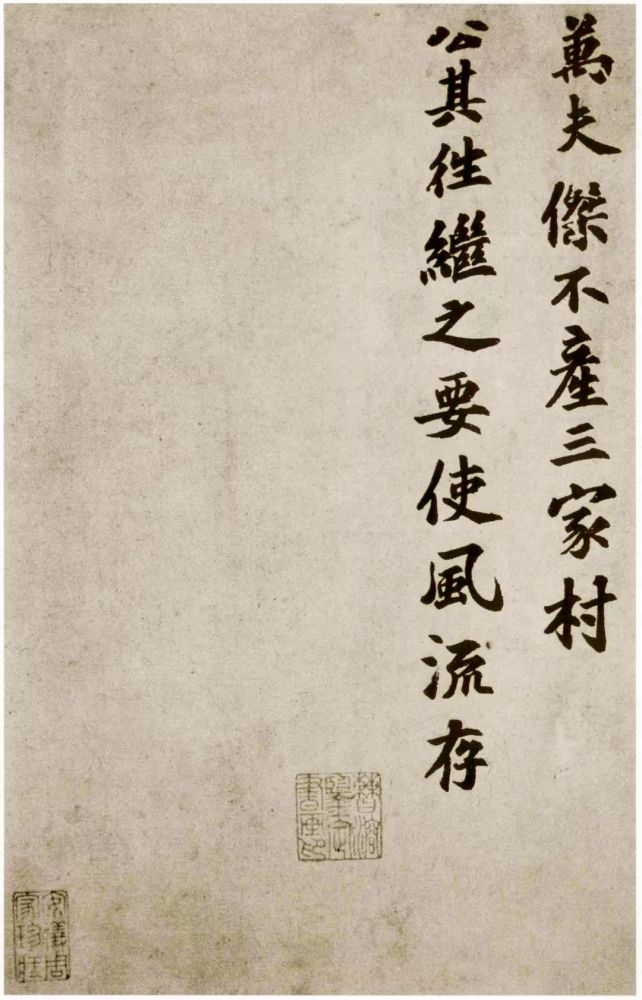 萬夫傑不產三家村
公其往繼之要使風流存